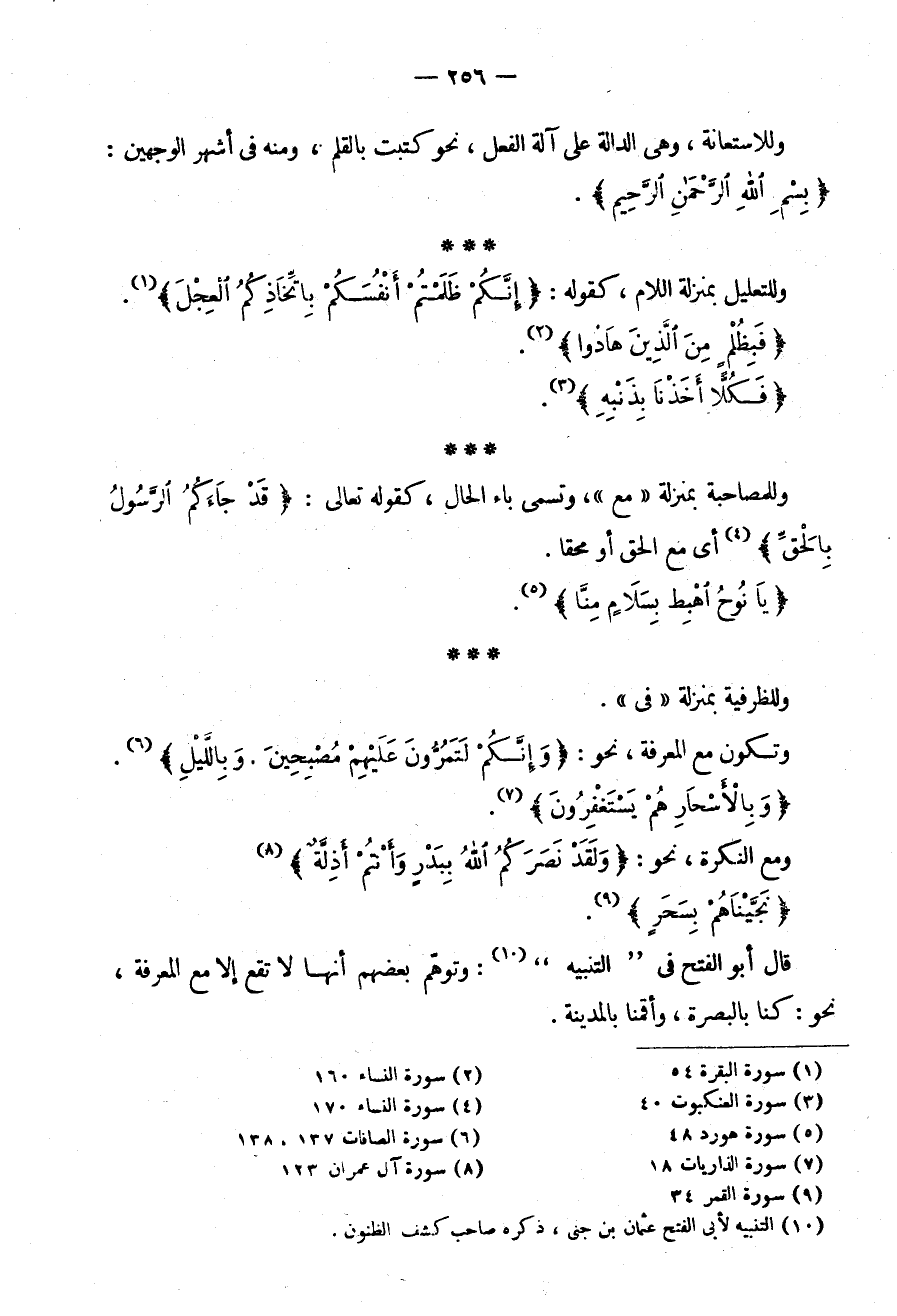 — ٢٥٦ —
وللاستعانة ، وهى الدالة على آلة الفعل ، نحو كتبت بالقلم ، ومنه فى أشهر الوجهين :
﴿ بِسْمِ ٱللهِ ٱلرَّحْمَٰنِ ٱلرَّحِيمِ ﴾ .
* * *
وللتعليل بمنزلة اللام ، كقوله : ﴿ إِنَّكُمْ ظَلَمْتُمْ أَنْفُسَكُمْ بِاتِّخَاذِكُمُ ٱلْعِجْلَ ﴾(١) .
﴿ فَبِظُلْمٍ مِنَ ٱلَّذِينَ هَادُوا ﴾ (٢) .
﴿ فَكُلًّا أَخَذْنَا بِذَنْبِهِ ﴾(٣) .
* * *
وللمصاحبة بمنزلة « مع » ، وتسمى باء الحال ، كقوله تعالى : ﴿ قَدْ جَاءَكُمُ ٱلرَّسُولُ
بِالْحَقِّ ﴾ (٤) أى مع الحق أو محقا .
﴿ يَا نُوحُ ٱهْبِط بِسَلَامٍ مِنَّا ﴾ (٥) .
* * *
وللظرفية بمنزلة « فى » .
وتكون مع المعرفة ، نحو : ﴿ وَإِنَّكُمْ لَتَمُرُّونَ عَلَيْهِمْ مُصْبِحِينَ . وَبِاللَّيْلِ ﴾ (٦) .
﴿ وَبِالْأَسْحَارِ هُمْ يَسْتَغْفِرُونَ ﴾ (٧) .
ومع النكرة ، نحو : ﴿ وَلَقَدْ نَصَرَكُمُ ٱللهُ بِبَدْرٍ وَأَنْتُمْ أَذِلَّةٌ ﴾ (٨)
﴿ نَجَّيْنَاهُمْ بِسَحَرٍ ﴾ (٩) .
قال أبو الفتح فى ” التنبيه “ (١٠) : وتوهّم بعضهم أنها لا تقع إلا مع المعرفة ،
نحو : كنا بالبصرة ، وأقمنا بالمدينة .
(١) سورة البقرة ٥٤ (٢) سورة النساء ١٦٠
(٣) سورة العنكبوت ٤٠ (٤) سورة النساء ١٧٠
(٥) سورة هورد ٤٨ (٦) سورة الصافات ١٣٧ ، ١٣٨
(٧) سورة الذاريات ١٨ (٨) سورة آل عمران ١٢٣
(٩) سورة القمر ٣٤
(١٠) التنبيه لأبى الفتح عثمان بن جنى ، ذكره صاحب كشف الظنون .